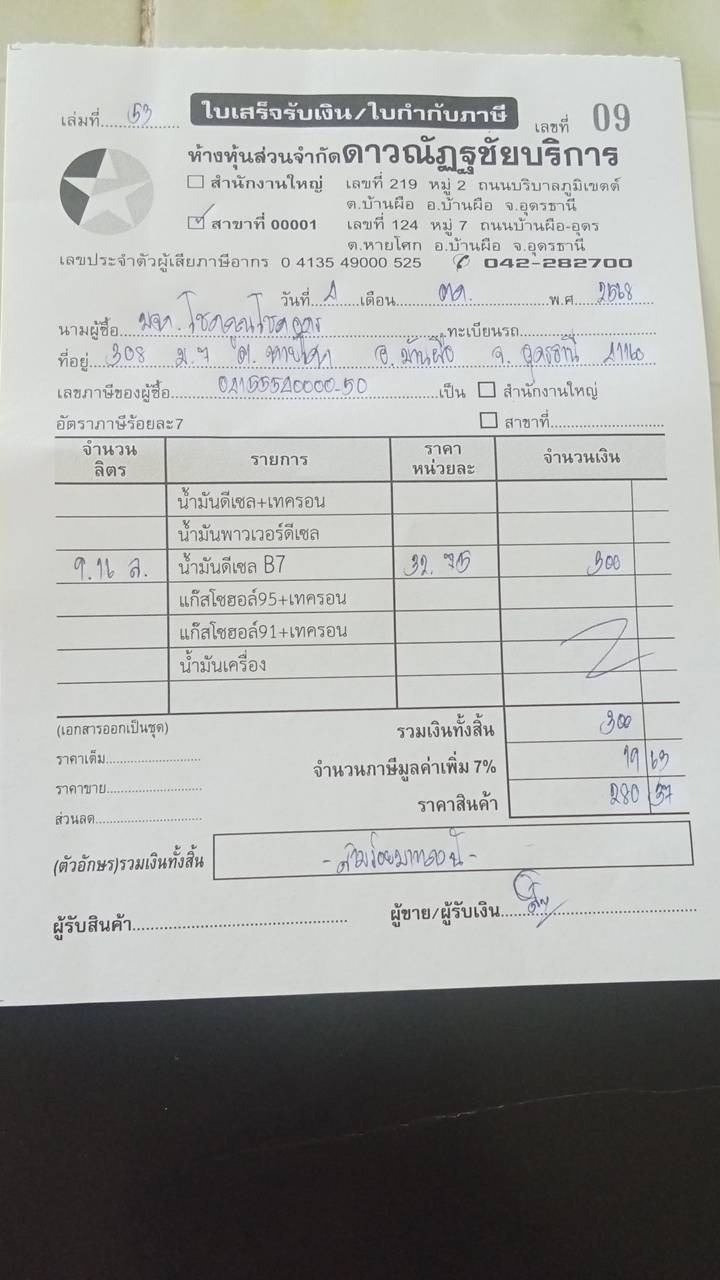 เล่มที่ 53 ใบเสร็จรับเงิน/ใบกำกับภาษี เลขที่ 09
ห้างหุ้นส่วนจำกัดดาวณัฏฐชัยบริการ
สำนักงานใหญ่ เลขที่ 219 หมู่ 2 ถนนบริบาลภูมิเขตต์
ต.บ้านผือ อ.บ้านผือ จ.อุดรธานี
สาขาที่ 00001 เลขที่ 124 หมู่ 7 ถนนบ้านผือ-อุดร
ต.หายโศก อ.บ้านผือ จ.อุดรธานี
เลขประจำตัวผู้เสียภาษีอากร 0 4135 49000 525 042-282700
วันที่ เดือน ตค. พ.ศ 2568
นามผู้ซื้อ หจก. โชคคูณโชคอุดร ทะเบียนรถ
ที่อยู่ 308 ม.7 ต. หายโศก อ.บ้านผือ จ.อุดรธานี 41160
เลขภาษีของผู้ซื้อ 04155540000-50 เป็น สำนักงานใหญ่
อัตราภาษีร้อยละ7 สาขาที่
จำนวนลิตร รายการ ราคาหน่วยละ จำนวนเงิน
น้ำมันดีเซล+เทครอน
น้ำมันพาวเวอร์ดีเซล
9.16 ล. น้ำมันดีเซล B7 32.75 300
แก๊สโซฮอล์95+เทครอน
แก๊สโซฮอล์91+เทครอน
น้ำมันเครื่อง
(เอกสารออกเป็นชุด) รวมเงินทั้งสิ้น 300
ราคาเต็ม
จำนวนภาษีมูลค่าเพิ่ม 7% 19 63
ราคาขาย
ราคาสินค้า 280 37
ส่วนลด
(ตัวอักษร)รวมเงินทั้งสิ้น -สามร้อยบาทถ้วน-
ผู้รับสินค้า ผู้ขาย/ผู้รับเงิน